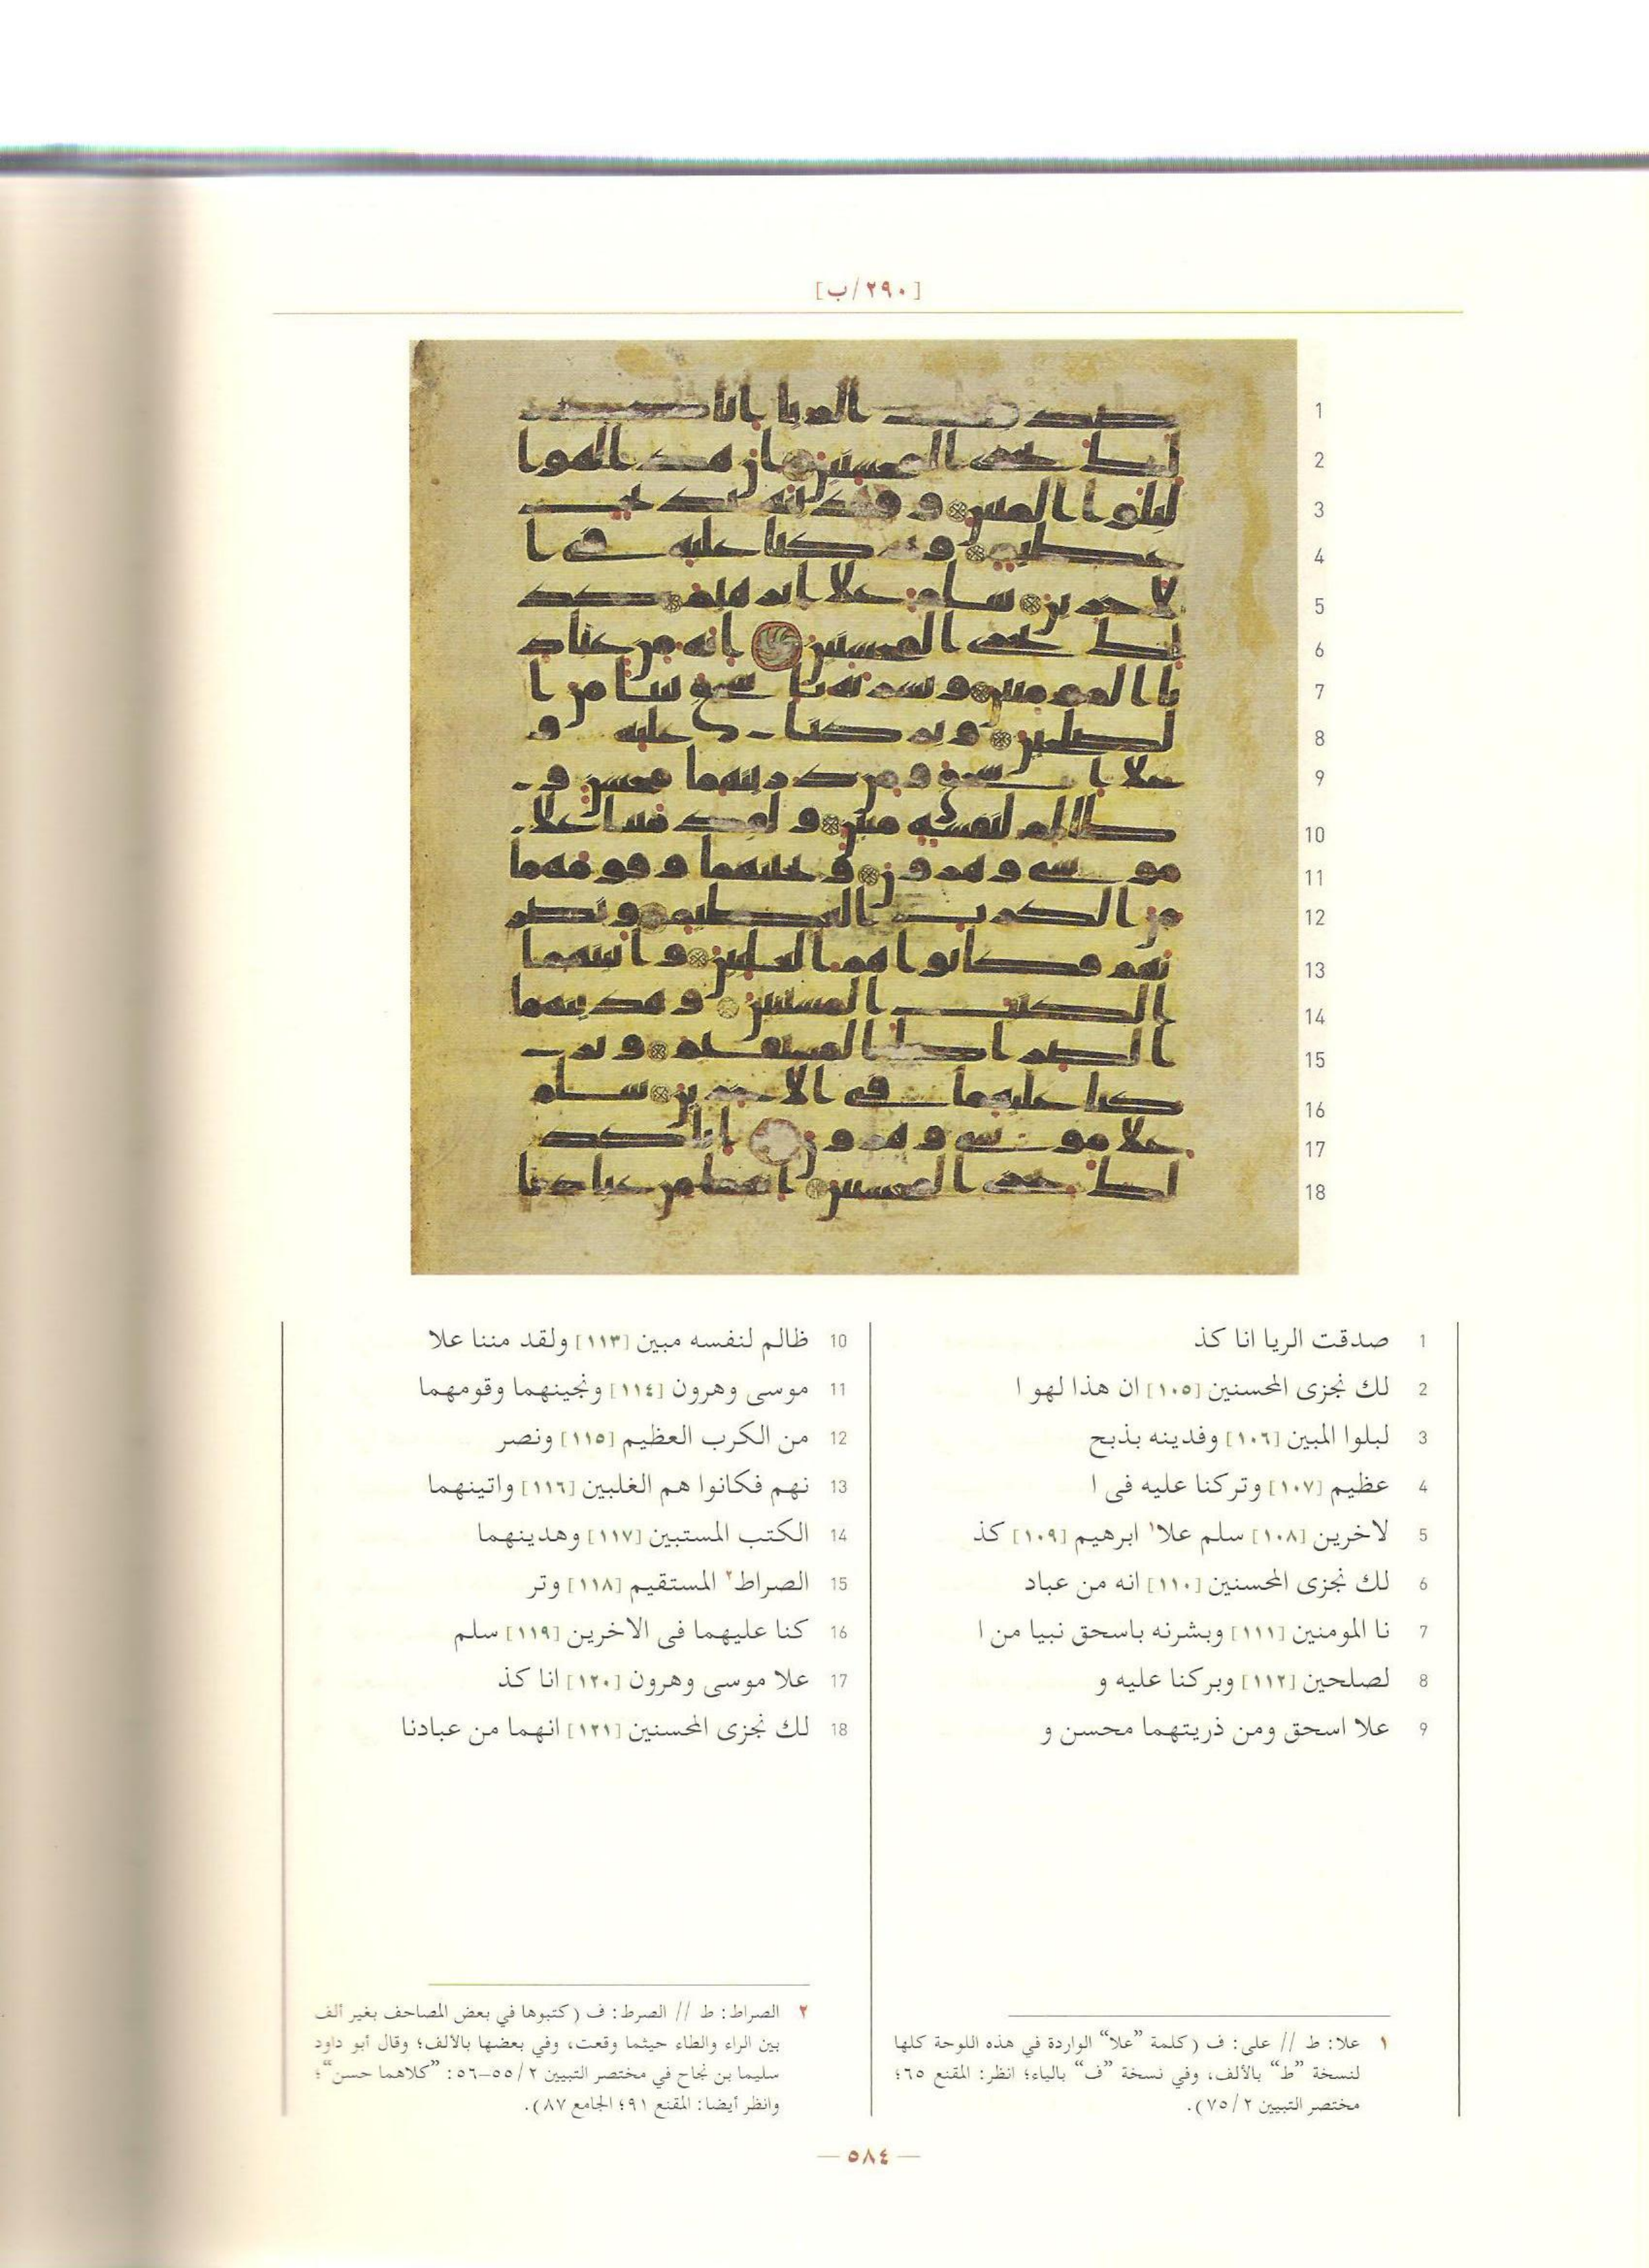 [٢٩٠/ب]
1
2
3
4
5
6
7
8
9
10
11
12
13
14
15
16
17
18
1 صدقت الريا انا كذ
2 لك نجزى المحسنين [١٠٥] ان هذا لهو ا
3 لبلوا المبين [١٠٦] وفدينه بذبح
4 عظيم [١٠٧] وتركنا عليه فى ا
5 لاخرين [١٠٨] سلم علا١ ابرهيم [١٠٩] كذ
6 لك نجزى المحسنين [١١٠] انه من عباد
7 نا المومنين [١١١] وبشرنه باسحق نبيا من ا
8 لصلحين [١١٢] وبركنا عليه و
9 علا اسحق ومن ذريتهما محسن و
10 ظالم لنفسه مبين [١١٣] ولقد مننا علا
11 موسى وهرون [١١٤] ونجينهما وقومهما
12 من الكرب العظيم [١١٥] ونصر
13 نهم فكانوا هم الغلبين [١١٦] واتينهما
14 الكتب المستبين [١١٧] وهدينهما
15 الصراط٢ المستقيم [١١٨] وتر
16 كنا عليهما فى الاخرين [١١٩] سلم
17 علا موسى وهرون [١٢٠] انا كذ
18 لك نجزى المحسنين [١٢١] انهما من عبادنا
١ علا: ط // على: ف (كلمة ”علا“ الواردة في هذه اللوحة كلها
لنسخة ”ط“ بالألف، وفي نسخة ”ف“ بالياء؛ انظر: المقنع ٦٥؛
مختصر التبيين ٢/٧٥).
٢ الصراط: ط // الصرط: ف (كتبوها في بعض المصاحف بغير ألف
بين الراء والطاء حيثما وقعت، وفي بعضها بالألف؛ وقال أبو داود
سليما بن نجاح في مختصر التبيين ٢/٥٥–٥٦: ”كلاهما حسن“؛
وانظر أيضا: المقنع ٩١؛ الجامع ٨٧).
— ٥٨٤ —